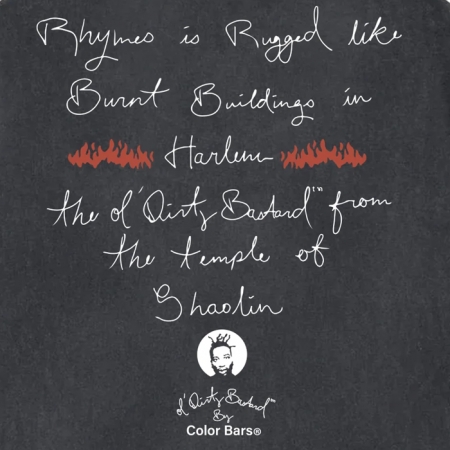 Rhymes is Rugged like
Burnt Buildings in
Harlem
the ol' Dirty Bastard™ from
the temple of
Shaolin
ol' Dirty Bastard™
By
Color Bars®